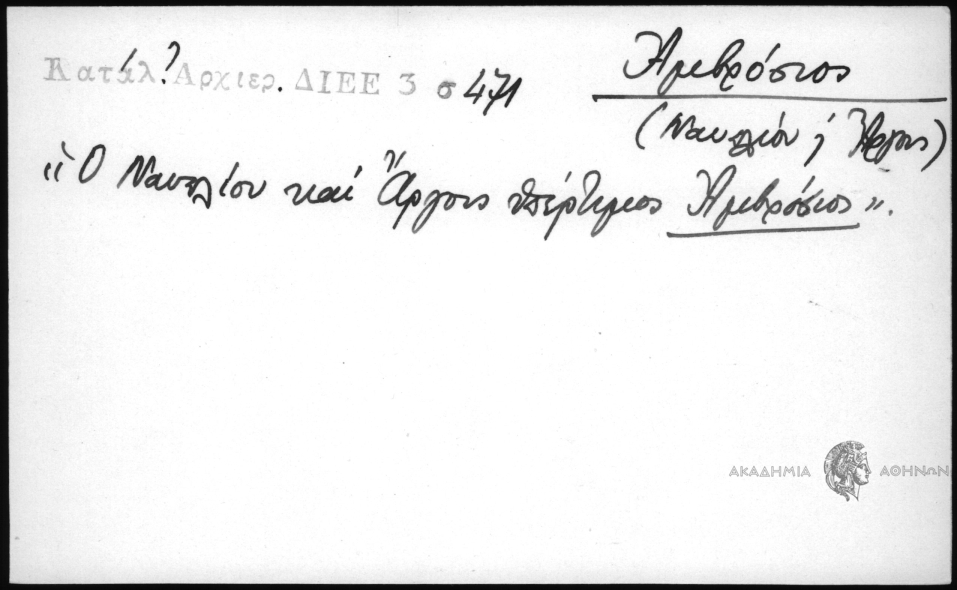 Κατάλ. Ἀρχιερ. ΔΙΕΕ 3 σ 471
Ἀμβρόσιος
(Ναυπλίου & Ἄργους)
«Ὁ Ναυπλίου καί Ἄργους ὑπέρτιμος Ἀμβρόσιος».
ΑΚΑΔΗΜΙΑ ΑΘΗΝΩΝ